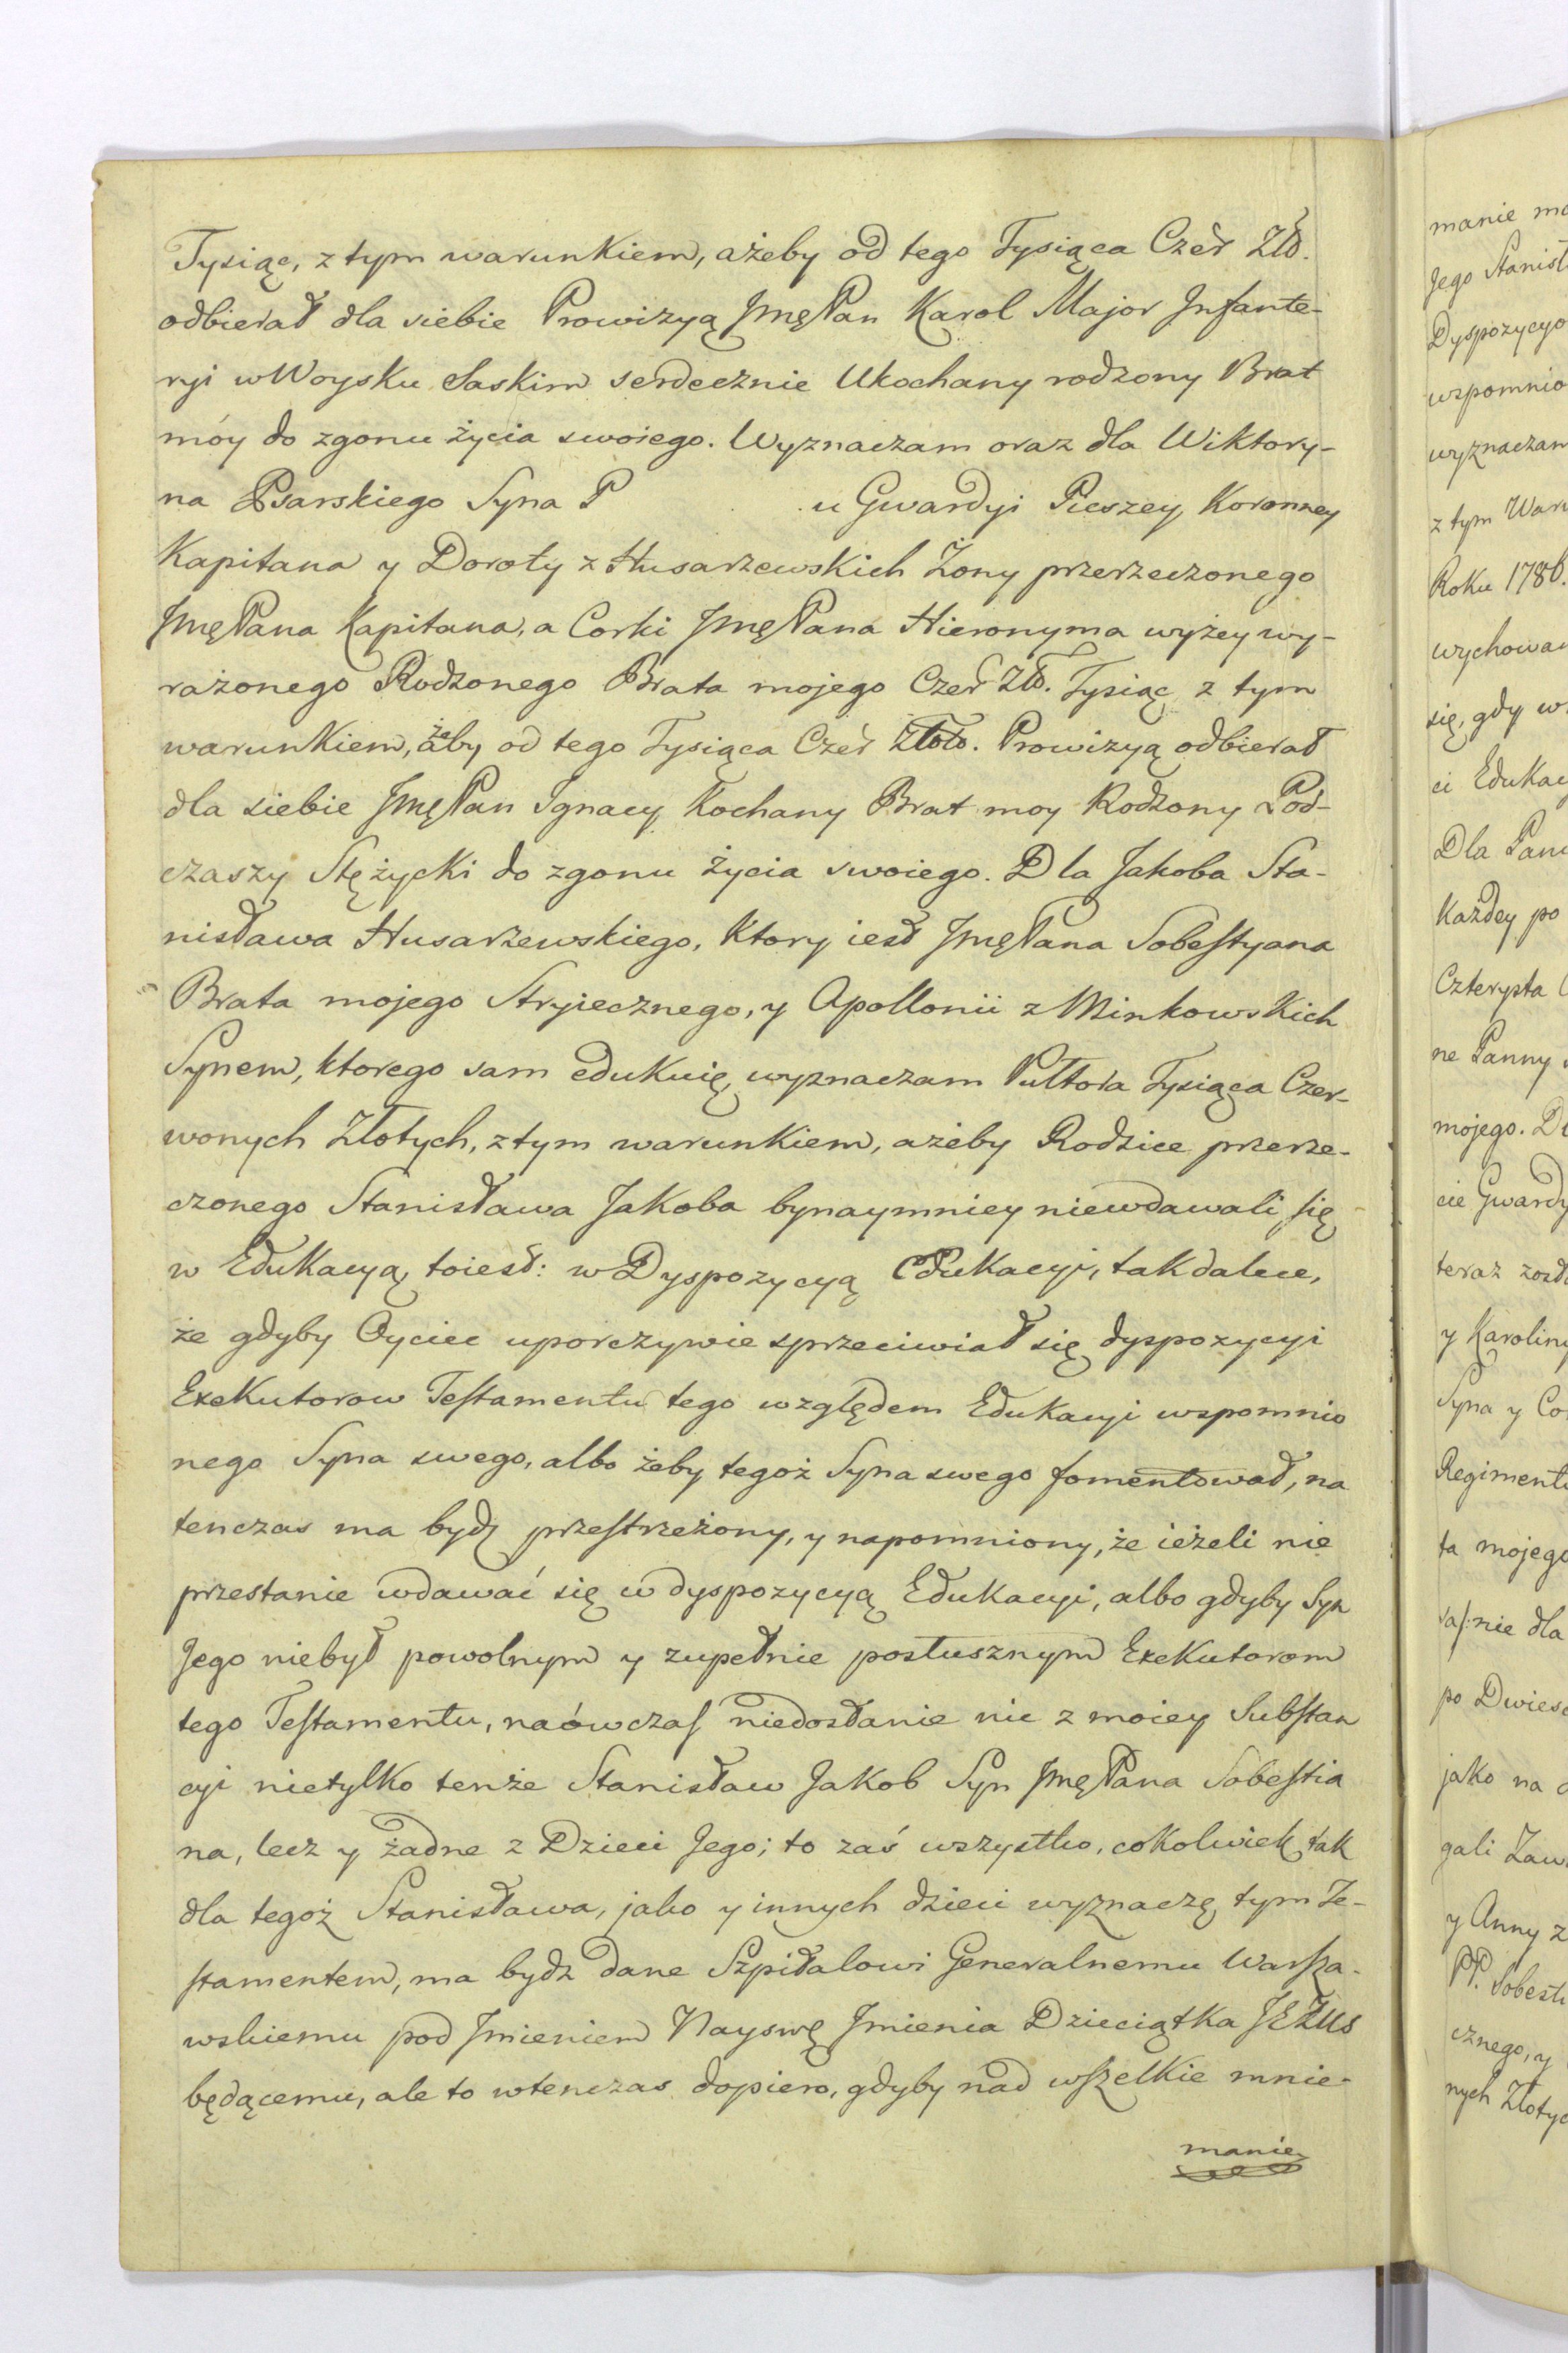 Tysiąc, z tym warunkiem, ażeby od tego Tysiąca Czer Złł.
odbierał dla siebie Prowizyą JmęPan Karol Major Infante-
ryi w Woysku Saskim serdecznie Ukochany rodzony Brat
móy do zgonu życia swoiego. Wyznaczam oraz dla Wiktory-
na Psarskiego Syna P u Gwardyi Pieszey Koronney
Kapitana y Doroty z Husarzewskich Żony przerzeczonego
JmęPana Kapitana, a Corki JmęPana Hieronyma wyżey wy-
rażonego Rodzonego Brata mojego Czer Złł. Tysiąc z tym
warunkiem, ażeby od tego Tysiąca Czer Złoto. Prowizyą odbierał
dla siebie JmęPan Ignacy Kochany Brat moy Rodzony Pod-
czaszy Stężycki do zgonu życia swoiego. Dla Jakoba Sta-
nisława Husarzewskiego, Ktory iest JmęPana Sobestyana
Brata mojego Stryiecznego, y Apollonii z Minkowskich
Synem, ktorego sam edukuię, wyznaczam Pułtora Tysiąca Czer-
wonych Złotych, z tym warunkiem, ażeby Rodzice przerze-
czonego Stanisława Jakoba bynaymniey niewdawali się
w Edukacyą, toiest: w Dyspozycyą Edukacyi, tak dalece,
że gdyby Oyciec uporczywie sprzeciwiał się dyspozycyi
Exekutorow Testamentu tego względem Edukacyi wspomnio
nego Syna swego, albo żeby tegoż Syna swego fomentował, na
tenczas ma bydź przestrzeżony, y napomniony, że ieżeli nie
przestanie wdawać się w dyspozycyą Edukacyi, albo gdyby Syn
Jego niebył powolnym y zupełnie posłusznym Exekutorom
tego Testamentu, naówczas niedostanie nic z moiey Substan
cyi nietylko tenże Stanisław Jakob Syn JmęPana Sobestia
na, lecz y żadne z Dzieci Jego; to zaś wszystko, cokolwiek tak
dla tegoż Stanisława, jako y innych dzieci wyznaczę tym Te-
stamentem, ma bydz dane Szpitalowi Generalnemu Warsza-
wskiemu pod Jmieniem Nayswę Jmienia Dzieciątka JEZUS
będącemu, ale to wtenczas dopiero, gdyby nad wszelkie mnie-
manie
manie
Jego
Dyspozycyo
wspomnio
wyznaczam
z tym
Roku 1786.
wychowan
się, gdy w
ci Edukacy
Dla
Każdey po
Czterysta
ne Panny
mojego.
cie Gwardy
teraz
y Karoliny
Syna y
Regiment
ta mojego
nie dla
po
jako na
gali
y Anny z
PP.
cznego, y
nych